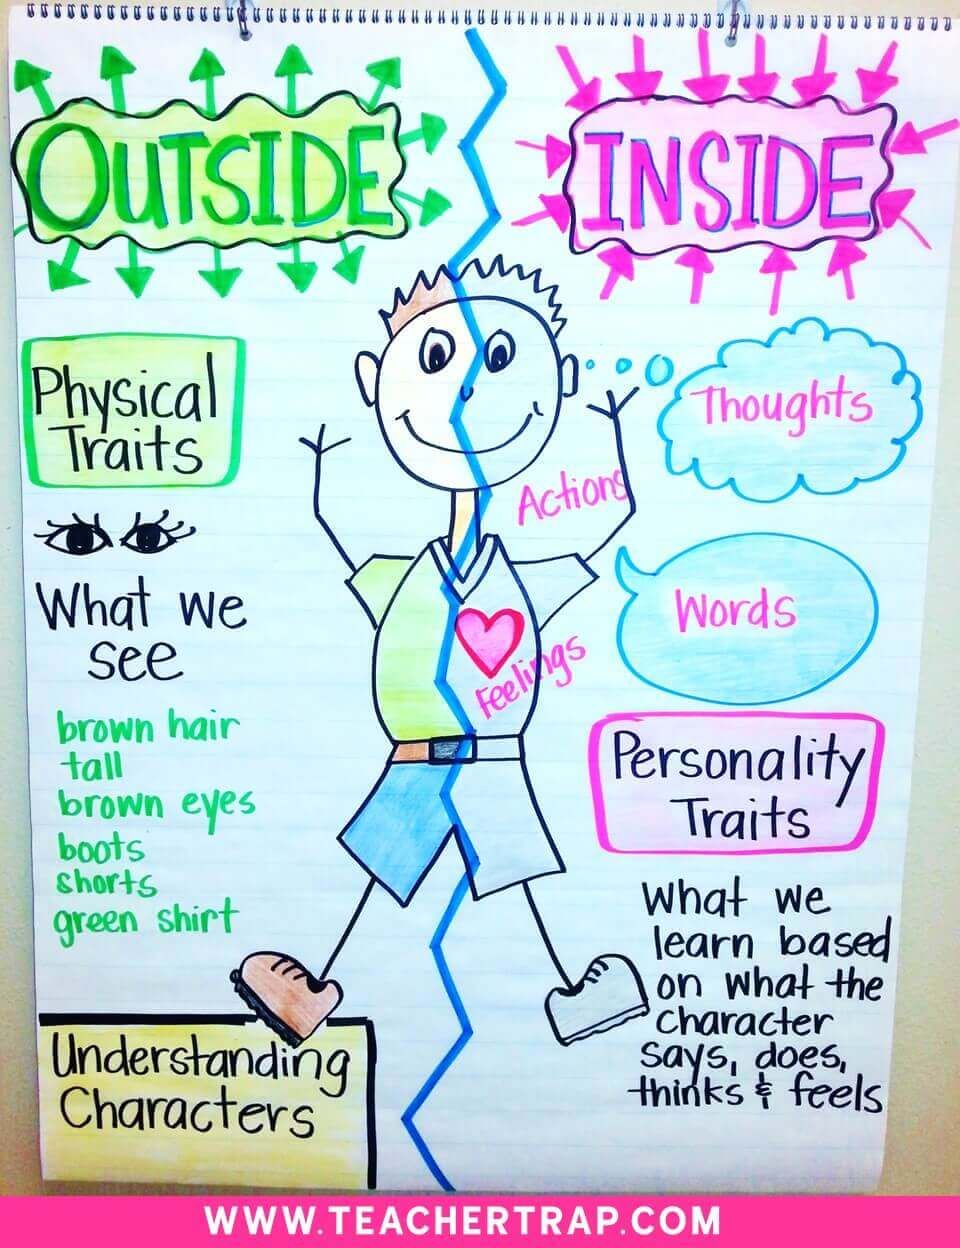 OUTSIDE
INSIDE
Physical
Traits
What we
see
brown hair
tall
brown eyes
boots
shorts
green shirt
Understanding
Characters
Thoughts
Actions
Words
Feelings
Personality
Traits
What we
learn based
on what the
character
says, does,
thinks & feels
WWW.TEACHERTRAP.COM